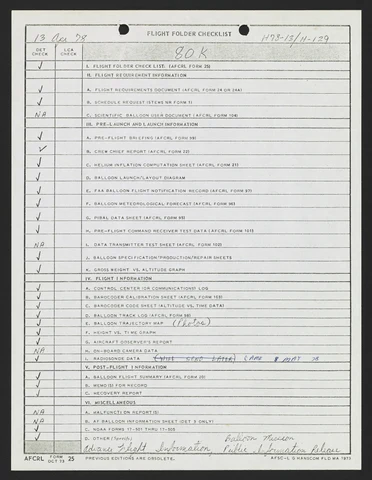 FLIGHT FOLDER CHECKLIST
13 Dec 78
H78-15/H-129
DET CHECK
LCR CHECK
80K
✓ I. FLIGHT FOLDER CHECK LIST: (AFCRL FORM 25)
II. FLIGHT REQUIREMENT INFORMATION
✓ A. FLIGHT REQUIREMENTS DOCUMENT (AFCRL FORM 28 OR 28A)
✓ B. SCHEDULE REQUEST (STEWS NR FORM 1)
NA C. SCIENTIFIC BALLOON USER DOCUMENT (AFCRL FORM 104)
III. PRE-LAUNCH AND LAUNCH INFORMATION
✓ A. PRE-FLIGHT BRIEFING (AFCRL FORM 59)
✓ B. CREW CHIEF REPORT (AFCRL FORM 22)
✓ C. HELIUM INFLATION COMPUTATION SHEET (AFCRL FORM 21)
✓ D. BALLOON LAUNCH/LAYOUT DIAGRAM
✓ E. FAA BALLOON FLIGHT NOTIFICATION RECORD (AFCRL FORM 97)
✓ F. BALLOON METEOROLOGICAL FORECAST (AFCRL FORM 96)
✓ G. PIBAL DATA SHEET (AFCRL FORM 95)
✓ H. PRE-FLIGHT COMMAND RECEIVER TEST DATA (AFCRL FORM 101)
NA I. DATA TRANSMITTER TEST SHEET (AFCRL FORM 102)
✓ J. BALLOON SPECIFICATION/PRODUCTION/REPAIR SHEETS
✓ K. GROSS WEIGHT VS. ALTITUDE GRAPH
IV. FLIGHT INFORMATION
✓ A. CONTROL CENTER (OR COMMUNICATIONS) LOG
✓ B. BAROCODER CALIBRATION SHEET (AFCRL FORM 103)
✓ C. BAROCODER CODE SHEET (ALTITUDE VS. TIME DATA)
✓ D. BALLOON TRACK LOG (AFCRL FORM 98)
✓ E. BALLOON TRAJECTORY MAP (Photos)
✓ F. HEIGHT VS. TIME GRAPH
✓ G. AIRCRAFT OBSERVER'S REPORT
NA H. ON-BOARD CAMERA DATA
I. RADIOSONDE DATA (WILL SEND LATER)
V. POST-FLIGHT INFORMATION
✓ A. BALLOON FLIGHT SUMMARY (AFCRL FORM 20)
✓ B. MEMO(S) FOR RECORD
✓ C. RECOVERY REPORT
VI. MISCELLANEOUS
NA A. MALFUNCTION REPORT(S)
NA B. AT BALLOON INFORMATION SHEET (DET 1 ONLY)
✓ C. NOAA FORMS 17-501 THRU 17-505
✓ D. OTHER (Specify)
Balloon Mission
Advance Flight Information, Public Information Release
AFCRL FORM OCT 75 25 PREVIOUS EDITIONS ARE OBSOLETE. AFSC-L G HANSCOM FLD MA 1975